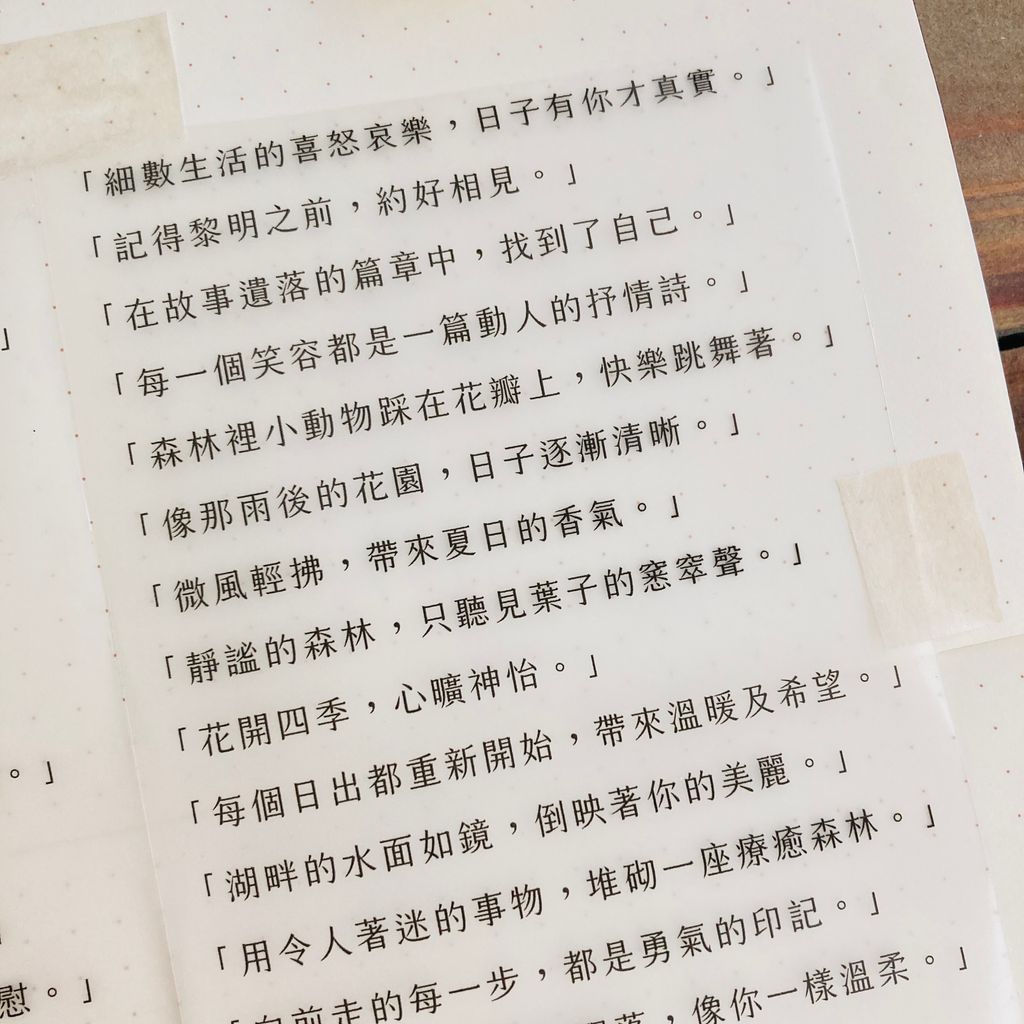 「細數生活的喜怒哀樂，日子有你才真實。」
「記得黎明之前，約好相見。」
「在故事遺落的篇章中，找到了自己。」
「每一個笑容都是一篇動人的抒情詩。」
「森林裡小動物踩在花瓣上，快樂跳舞著。」
「像那雨後的花園，日子逐漸清晰。」
「微風輕拂，帶來夏日的香氣。」
「靜謐的森林，只聽見葉子的窸窣聲。」
「花開四季，心曠神怡。」
「每個日出都重新開始，帶來溫暖及希望。」
「湖畔的水面如鏡，倒映著你的美麗。」
「用令人著迷的事物，堆砌一座療癒森林。」
「向前走的每一步，都是勇氣的印記。」
落，像你一樣溫柔。」
」
。」
慰。」